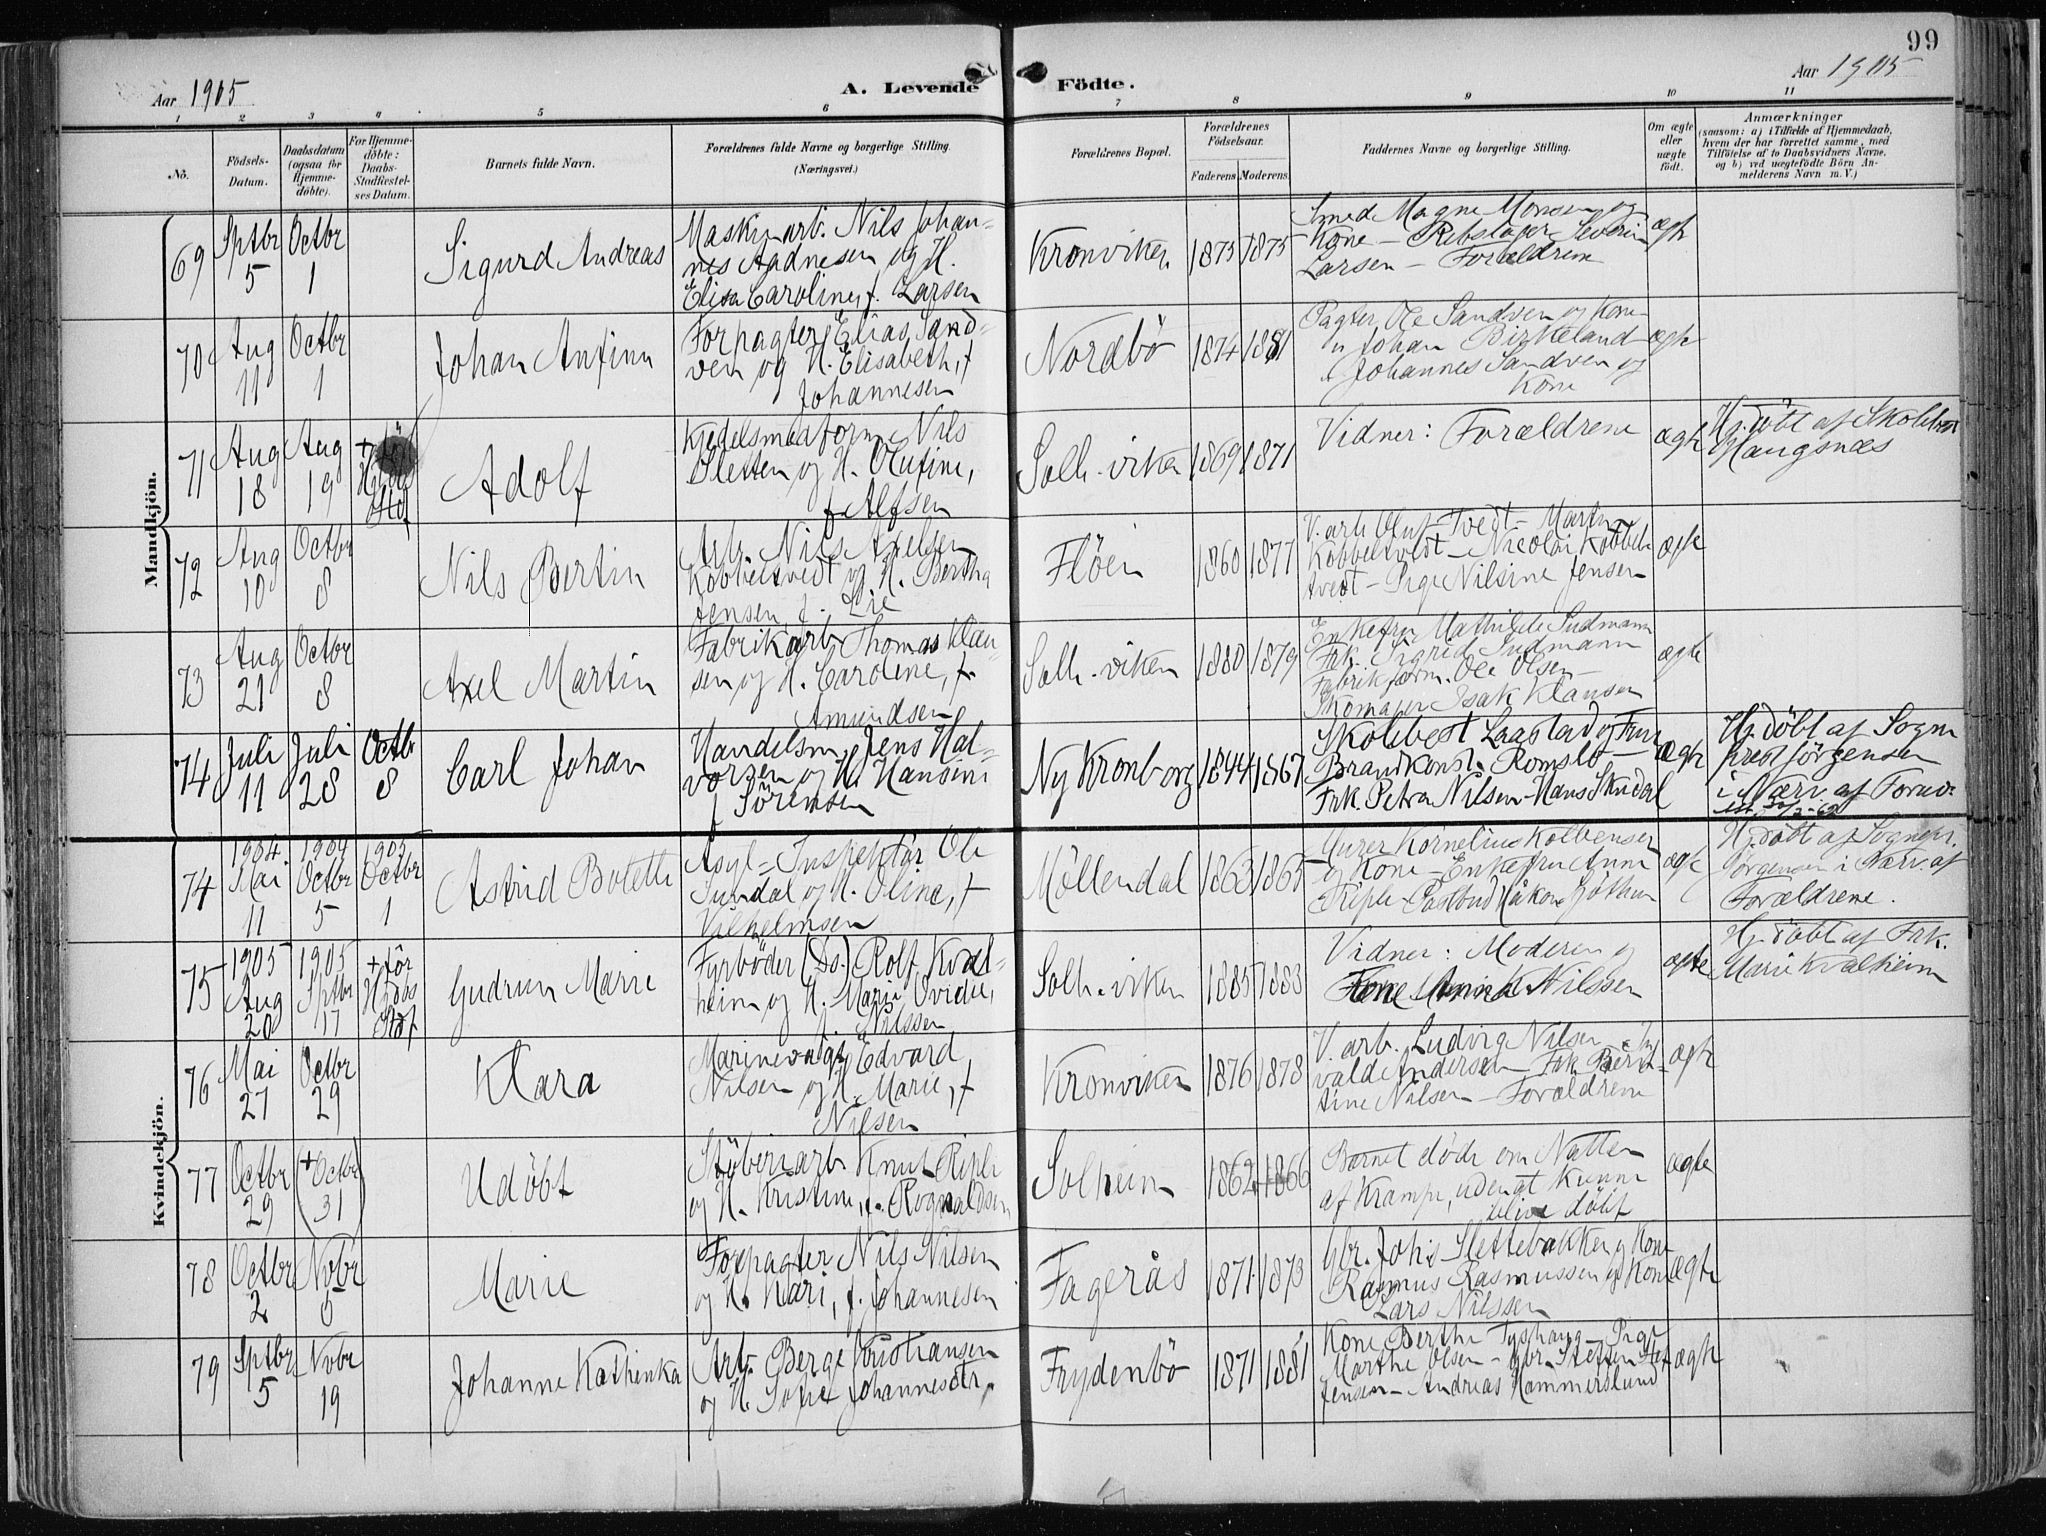 99
Aar 1905
A. Levende Födte.
Aar 1905
1 2 3 4 5 6 7 8 9 10 11
No.
Födsels-Datum.
Daabsdatum (ogsaa för Hjemme-döbte).
For Hjemme-döbte: Daabs-Stadfæstel-ses Datum.
Barnets fulde Navn.
Forældrenes fulde Navne og borgerlige Stilling. (Næringsvei.)
Forældrenes Bopæl.
Forældrenes Födselsaar.
Faderens Moderens
Faddernes Navne og borgerlige Stilling.
Om ægte eller uægte födt.
Anmærkninger
(saasom: a) i Tilfælde af Hjemmedaab,
hvem der har forrettet samme, med
Tilföielse af to Daabsvidners Navne,
og b) ved uægtefödte Börn An-
melderens Navn m. V.)
Mandkjön.
69
Sptbr 5
Octbr 1
Sigurd Andreas
Maskinarb. Nils Johan-
nes Aadnesen og H.
Elisa Caroline, f. Larsen
Kronviken
1873 1875
Smed Magne Monsen og
Kone - Rebslager Severin
Larsen - Forældrene
ægte
70
Aug 11
Octbr 1
Johan Anfinn
Forpagter Elias Sand-
ven og H. Elisabeth, f
Johannesen
Nordbö
1874 1881
Pagter Ole Sandven og Kone
" Johan Birkeland
" Johannes Sandven og
Kone
ægte
71
Aug 18
Aug 19
Adolf
Kjedelsmedform. Nils
Sletten og H. Olufine,
f. Alfsen
Solh.-viken
1869 1871
Vidner: Forældrene
ægte
Hj.döbt af Skolebest
Haugsnæs
72
Aug 10
Octbr 8
Nils Bertin
Arb. Nils Axelsen
Kobbeltvedt og H. Bertha
Jensen, f. Lie
Flöen
1860 1877
V.arb Oluf Tvedt - Martin
Kobbeltvedt - Nicolai Kobbel-
tvedt - Pige Nilsine Jensen
ægte
73
Aug 21
Octbr 8
Axel Martin
Fabrikarb Thomas Klau-
sen og H. Caroline, f.
Amundsen
Solh.-viken
1880 1879
Enkefru Mathilde Sudmann
Frk. Sigrid Sudmann
Fabrikform. Ole Olsen -
Skomager Isak Klausen
ægte
74
Juli 11
Juli 28
Octb 8
Carl Johan
Handelsm. Jens Hal-
vorsen og H. Hansine
f Sörensen
Ny Kronborg
1844 1867
Skolebest Laastad og Frue
Brandkonst. Romslo -
Frk. Petra Nilsen - Hans Skudal
ægte
Hj.döbt af Sogne
præst Jörgensen
i Nærv. af Foræd.
Kvindekjön.
74
1904 Mai 11
1904 Octbr 5
1905 Octbr 1
Astrid Botette
Asyl-Inspektör Ole
Sundal og H. Oline, f
Vilhelmsen
Möllendal
1863 1865
Murer Kornelius Kolbensen
og Kone - Enkefru Anne
Riple - Postbud Håkon Jöthun
ægte
Hj.döbt af Sognepr.
Jörgensen i Nærv. af
Forældrene.
75
1905 Aug 20
1905 Sptbr 17
+ för Hjdbs Stdf
Gudrun Marie
Fyrböder (Ds.) Rolf Kval-
heim og H. Marie Ovidie,
f. Nilssen
Solh.-viken
1885 1883
Vidner: Moderen og
Kone Anna Nilssen
ægte
Hj.döbt af Frk.
Marie Kvalheim
76
Mai 27
Octbr 29
Klara
Marinevagt Edvard
Nilsen og H. Marie, f
Nilsen
Kronviken
1876 1878
V. arb. Ludvig Nilsen - Thj
vald Andersen - Frk. Bern-
tine Nilsen - Forældrene
ægte
77
Octbr 29
(+ Octbr 31)
Udöbt
Stöberiarb Knut Riple
og H. Kristine, f. Rognaldsen
Solheim
1862 1866
Barnet döde om Natten
af Krampe, uden at kunne
blive döbt
ægte
78
Octbr 2
Novbr 5
Marie
Forpagter Nils Nilsen
og H. Kari, f. Johannesen
Fagerås
1871 1873
Gbr. Johs Slettebakken og Kone
Rasmus Rasmussen og Kone
Lars Nilssen
ægte
79
Sptbr 5
Novbr 19
Johanne Kathinka
Arb. Berge Kristiansen
og H. Sofie Johannesdtr,
Frydenbö
1871 1881
Kone Berthe Tyshaug - Pige
Marthe Olsen - Gbr. Steffen
Jensen - Andreas Hammerslund
ægte